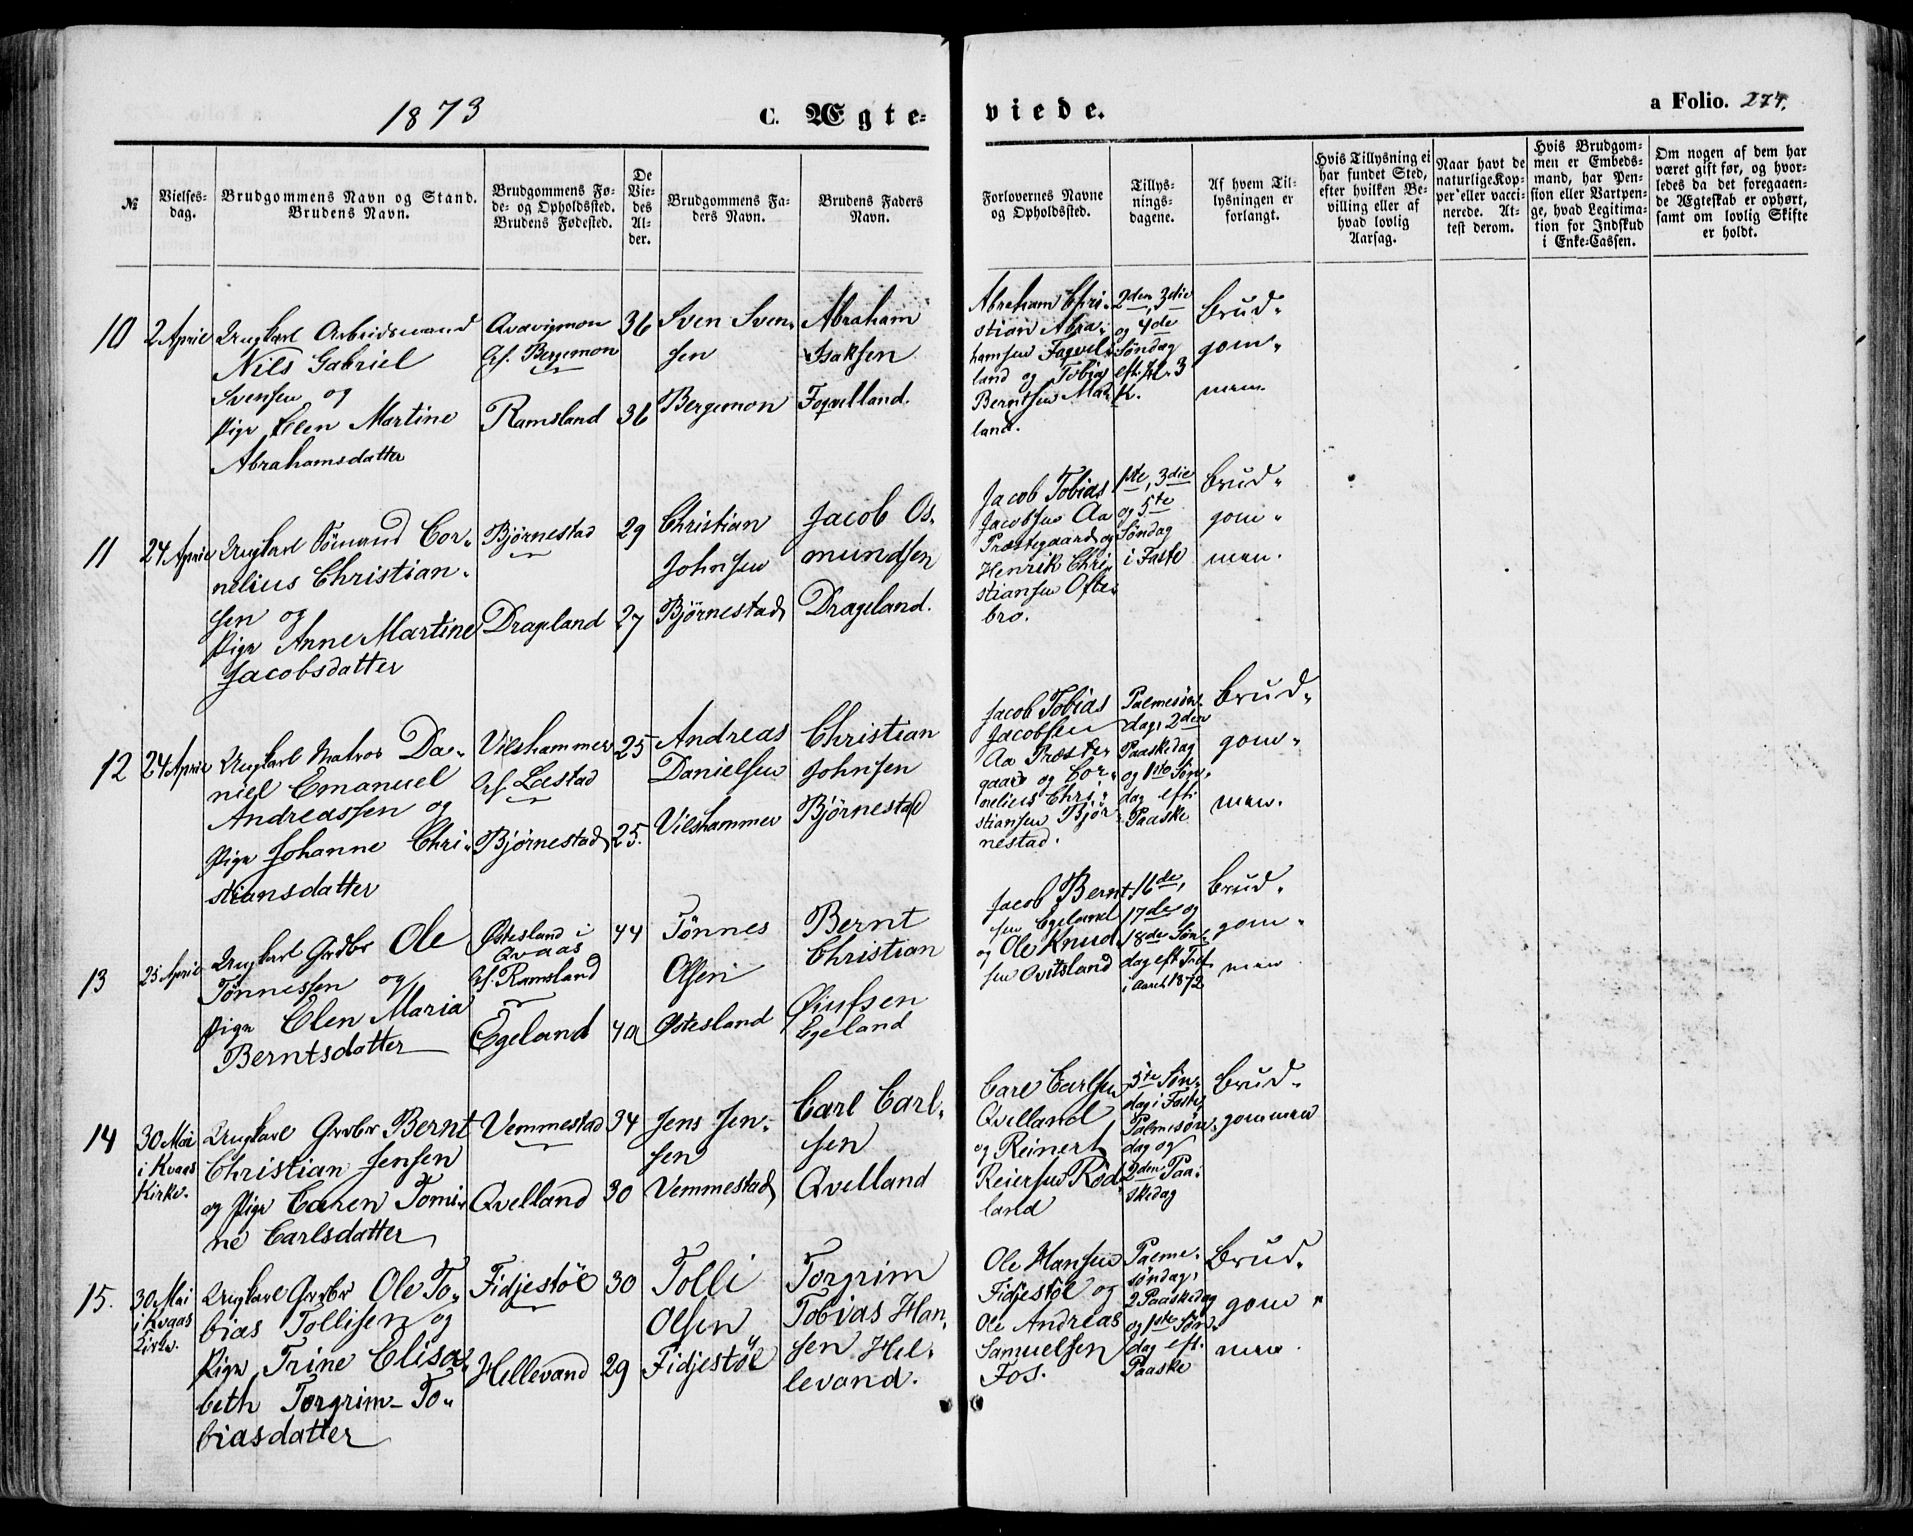 1873
C. Ægte-
viede.
a Folio. 274.
№
Vielses-
dag.
Brudgommens Navn og Stand.
Brudens Navn.
Brudgommens Fø-
de- og Opholdssted.
Brudens Fødested.
De
Vie-
des
Al-
der.
Brudgommens Fa-
ders Navn.
Brudens Faders
Navn.
Forlovernes Navne
og Opholdssted.
Tillys-
nings-
dagene.
Af hvem Til-
lysningen er
forlangt.
Hvis Tillysning ei
har fundet Sted,
efter hvilken Be-
villing eller af
hvad lovlig
Aarsag.
Naar havt de
naturlige Kop-
per eller vacci-
nerede. At-
test derom.
Hvis Brudgom-
men er Embeds-
mand, har Pen-
sion eller Vartpen-
ge, hvad Legitima-
tion for Indskud
i Enke-Cassen.
Om nogen af dem har
været gift før, og hvor-
ledes da det foregaaen-
de Ægteskab er ophørt,
samt om lovlig Skifte
er holdt.
10
2 April
Ungkarl Arbeidsmand
Nils Gabriel
Svensen og
Pige Elen Martine
Abrahamsdatter
Bergemon
Ramsland
36
36
Sven Sven-
sen
Bergemon
Abraham
Isaksen
Foqvelland.
Abraham Chri-
stian Abra-
hamsen Foqvel-
land og Tobias
Berntsen
land.
2den, 3die
og 4de
Søndag
eft. H. 3
K.
Brud-
gom-
men.
11
24 April
Ungkarl Sømand Cor-
nelius Christian-
sen og
Pige Anne Martine
Jacobsdatter
Bjørnestad
Drageland
29
27
Christian
Johnsen
Bjørnestad
Jacob Os-
mundsen
Drageland.
Jacob Tobias
Jacobsen Aa
Præstegaard og
Henrik Chri-
stiansen Ofte-
bro.
1ste, 3die
og 5te
Søndag
i Faste
Brud-
gom-
men.
12
24 April
Ungkarl Matros Da-
niel Emanuel
Andreassen og
Pige Johanne Chri-
stiansdatter
Vilshammer
Gf. Læstad
Bjørnestad
25
25.
Andreas
Danielsen
Vilshammer
Christian
Johnsen
Bjørnestad
Jacob Tobias
Jacobsen
Aa Præste-
gaard og Cor-
nelius Chri-
stiansen Bjør-
nestad.
Palmesøn-
dag, 2den
Paaskedag
og 1ste Søn-
dag eft.
Paaske
Brud-
gom-
men.
13
25 April
Ungkarl Grdbr Ole
Tønnessen og
Pige Elen Maria
Berntsdatter
Østesland i
Qvaas
Gf. Ramsland
Egeland
44
40
Tønnes
Olsen
Østesland
Bernt
Christian
Egeland
Jacob Bernt-
sen Egeland
og Ole Knud-
sen Qvitsland
16de,
17de og
18de Søn-
dag eft. Tref.
i Aaret 1872
Brud-
gom-
men
14
30 Mai
i Kvaas
Kirke.
Ungkarl Grdbr Bernt
Christian Jensen
og Pige Caren Tomi-
ne Carlsdatter
Vemmestad
Qvelland
34
30
Jens Jen-
sen
Vemmestad
Carl Carl-
sen
Qvelland
Carl Carlsen
Qvelland
og Reinert
Reiersen Rød-
land
5te Søn-
dag i Faste,
Palmesøn-
dag og
2den Paa-
skedag
Brud-
gommen
15.
30 Mai
i Kvaas
Kirke.
Ungkarl Grdbr Ole To-
bias Tollisen og
Pige Trine Elisa-
beth Torgrim-To-
biasdatter
Fidjestøl
Hellevand
30
29
Tolli
Olsen
Fidjestøl
Torgrim
Tobias Han-
sen Hel-
levand.
Ole Hansen
Fidjestøl og
Ole Andreas
Samuelsen
Fos.
Palme-
søndag,
2 Paaskedag
og 1ste Søn-
dag eft.
Paaske
Brud-
gom-
men.